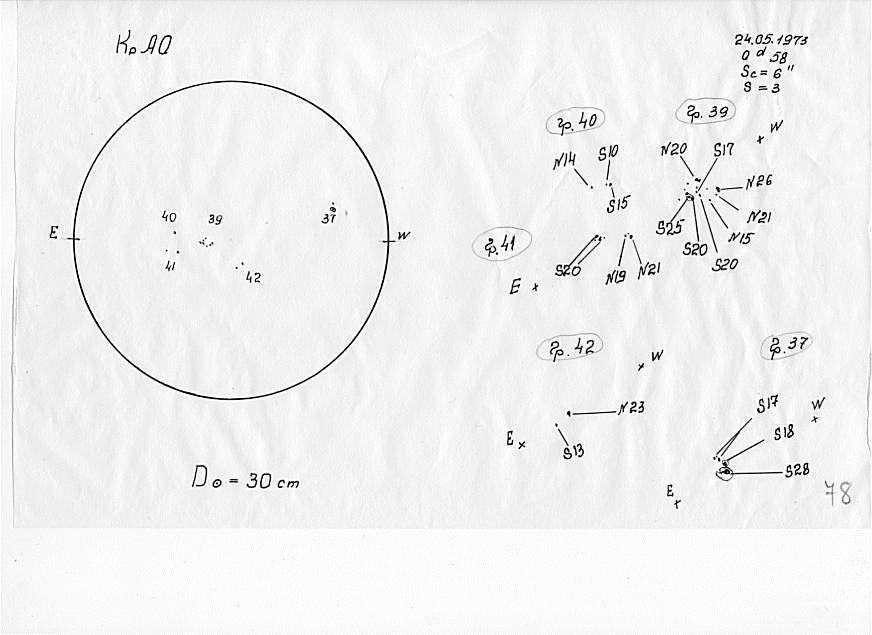 КрАО
24.05.1973
0 d 58
Sc = 6"
S = 3
E
W
40
39
37
41
42
D⊙ = 30 cm
гр. 40
N14
S10
S15
гр. 39
W
N20
S17
N26
N21
N15
S20
S20
S25
гр. 41
E
S20
N19
N21
гр. 42
W
N23
E
S13
гр. 37
W
S17
S18
S28
E
78